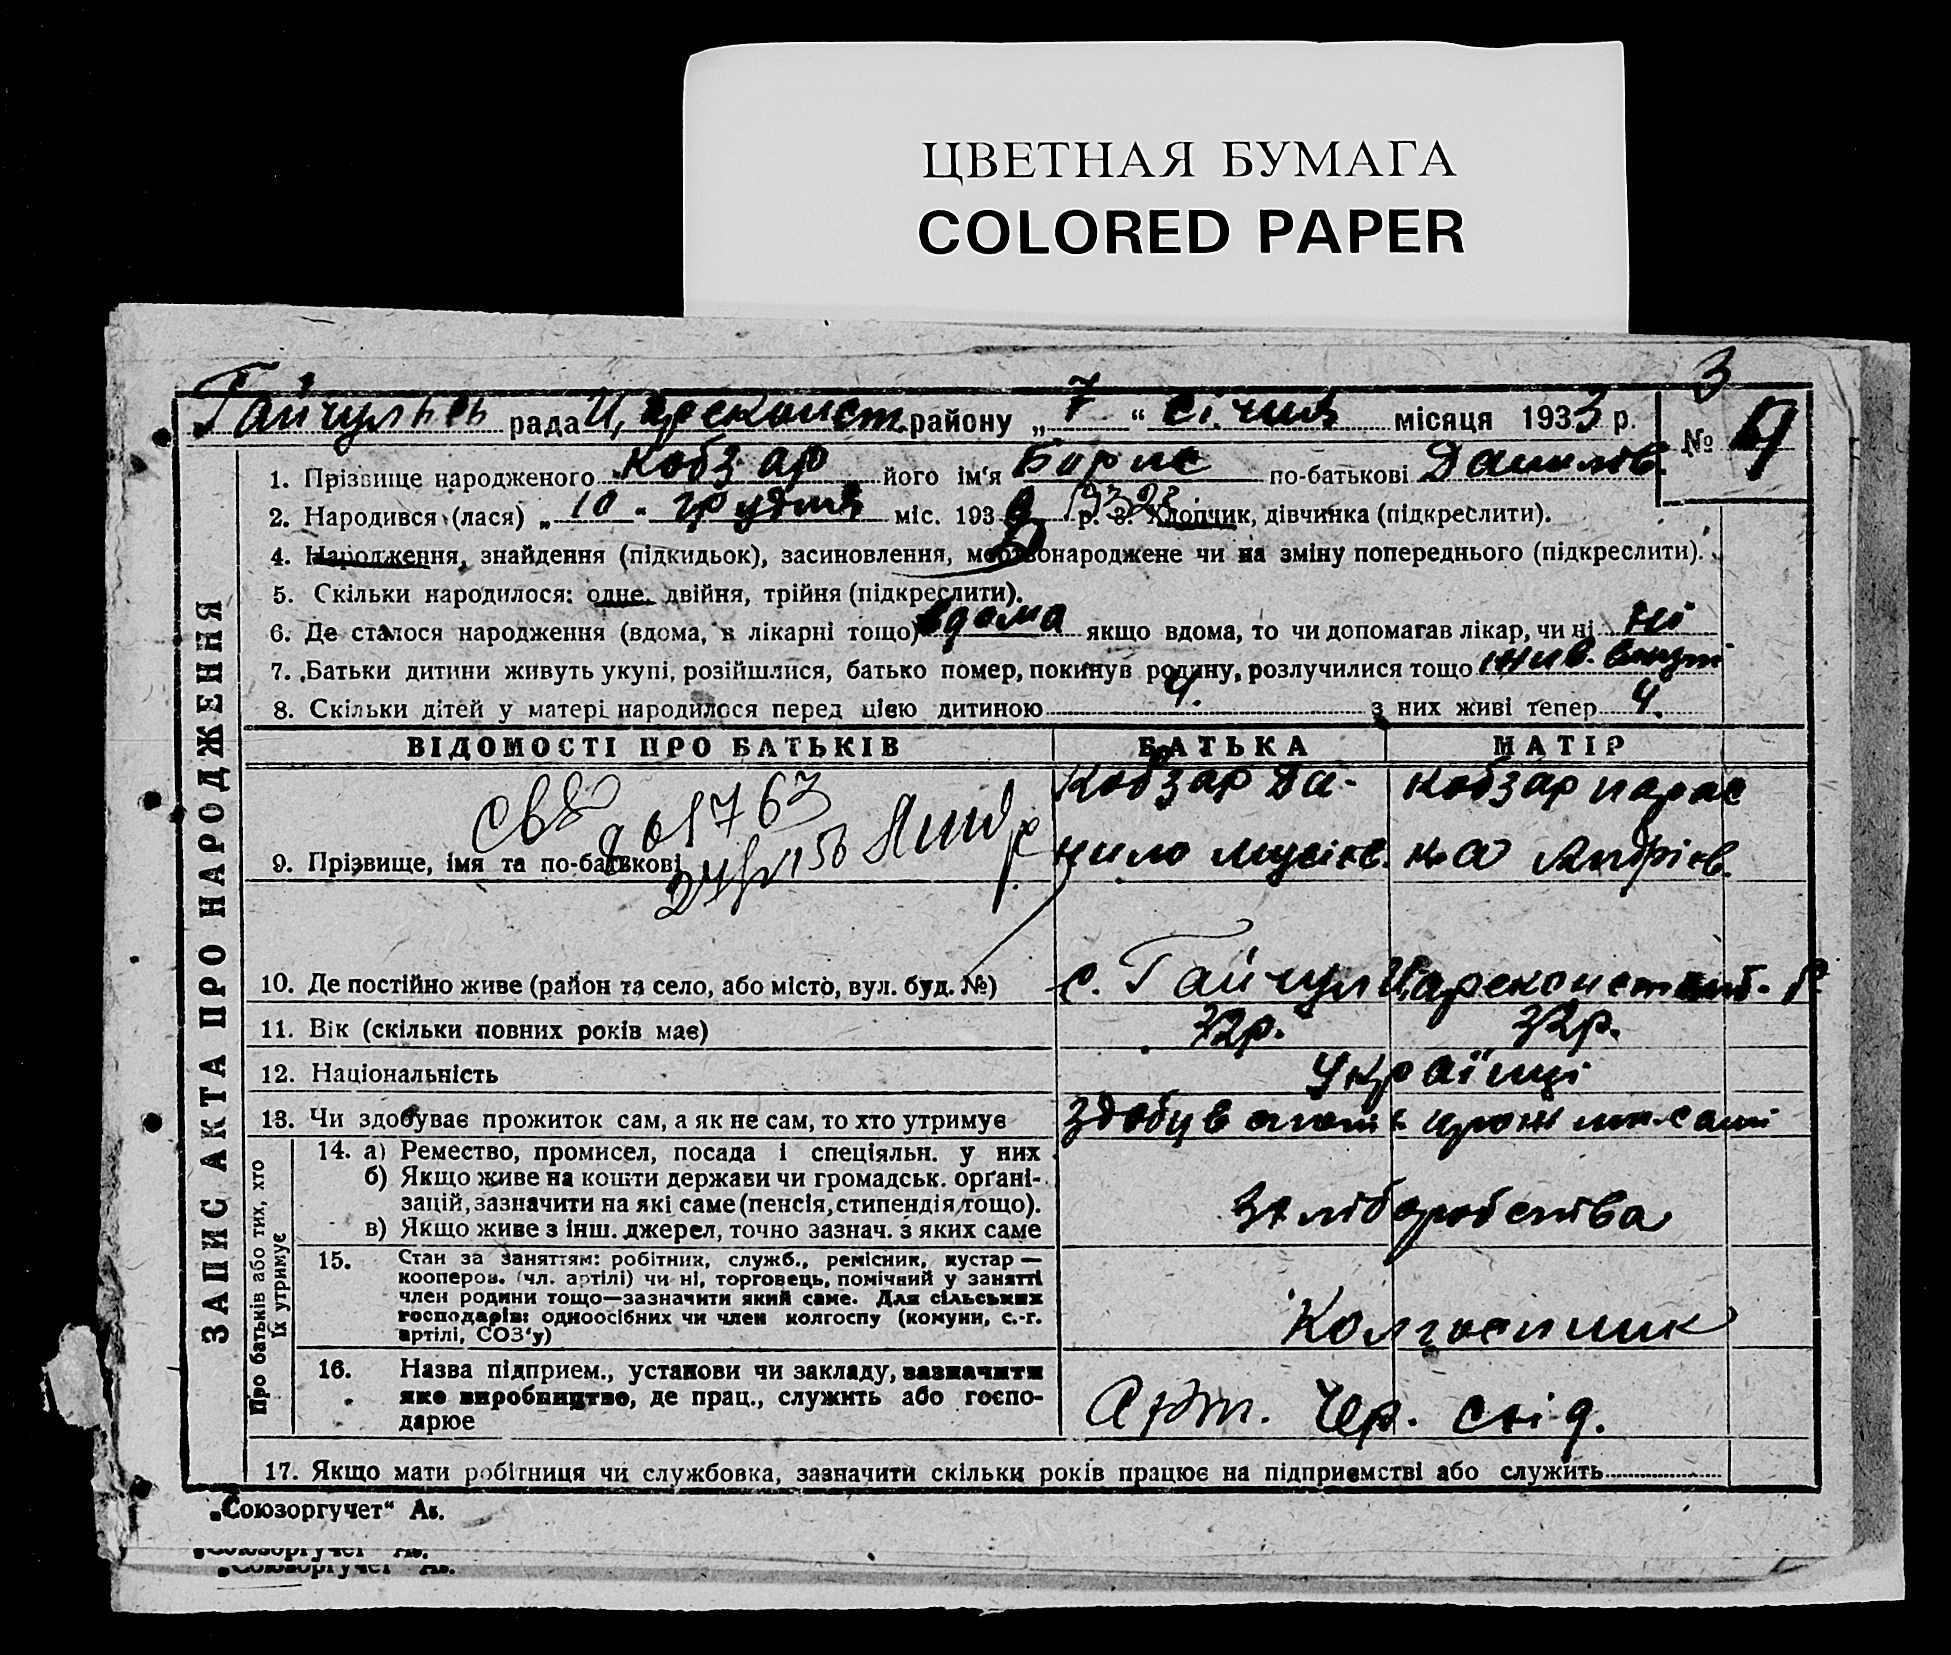 ЦВЕТНАЯ БУМАГА
COLORED PAPER
3
Гайчульськ рада Цареконст. району „7“ січня місяця 1933 р. №
1. Прізвище народженого Кобзар його ім'я Борис по-батькові Данилов.
2. Народився (лася) „10“ грудня міс. 193 р. 1932 р. 3. Хлопчик, дівчинка (підкреслити).
4. Народження, знайдення (підкидьок), засиновлення, мертвонароджене чи на зміну попереднього (підкреслити).
5. Скільки народилося: одне, двійня, трійня (підкреслити).
6. Де сталося народження (вдома, в лікарні тощо) вдома якщо вдома, то чи допомагав лікар, чи ні ні
7. Батьки дитини живуть укупі, розійшлися, батько помер, покинув родину, розлучилися тощо жив. вкупі
8. Скільки дітей у матері народилося перед цією дитиною 4. з них живі тепер 4.
ЗАПИС АКТА ПРО НАРОДЖЕННЯ
ВІДОМОСТІ ПРО БАТЬКІВ БАТЬКА МАТІР
Кобзар Да- Кобзар Парас
9. Прізвище, імя та по-батькові нило Мусієв. ка Андрієв.
10. Де постійно живе (район та село, або місто, вул. буд. №) с. Гайчул Цареконстант. р
11. Вік (скільки повних років має) 32р. 32р.
12. Національність Українці
13. Чи здобуває прожиток сам, а як не сам, то хто утримує
Про батьків або тих, хто
їх утримує
14. а) Ремество, промисел, посада і спеціяльн. у них
б) Якщо живе на кошти держави чи громадськ. орґані-
зацій, зазначити на які саме (пенсія, стипендія, тощо).
хліборобства
в) Якщо живе з інш. джерел, точно зазнач. з яких саме
15. Стан за заняттям: робітник, служб., ремісник, кустар —
кооперов. (чл. артілі) чи ні, торговець, помічний у занятті
член родини тощо—зазначити який саме. Для сільських
господарів: одноосібних чи член колгоспу (комуни, с.-г.
артілі, СОЗ'у)
Колгоспник
16. Назва підприєм., установи чи закладу, зазначити
яке виробництво, де прац., служить або госпо-
дарює
Арт. Чер. схід.
17. Якщо мати робітниця чи службовка, зазначити скільки років працює на підприємстві або служить
„Союзоргучет“ Ав.
„Союзоргучет“ Ав.
„Союзоргучет“ Ав.